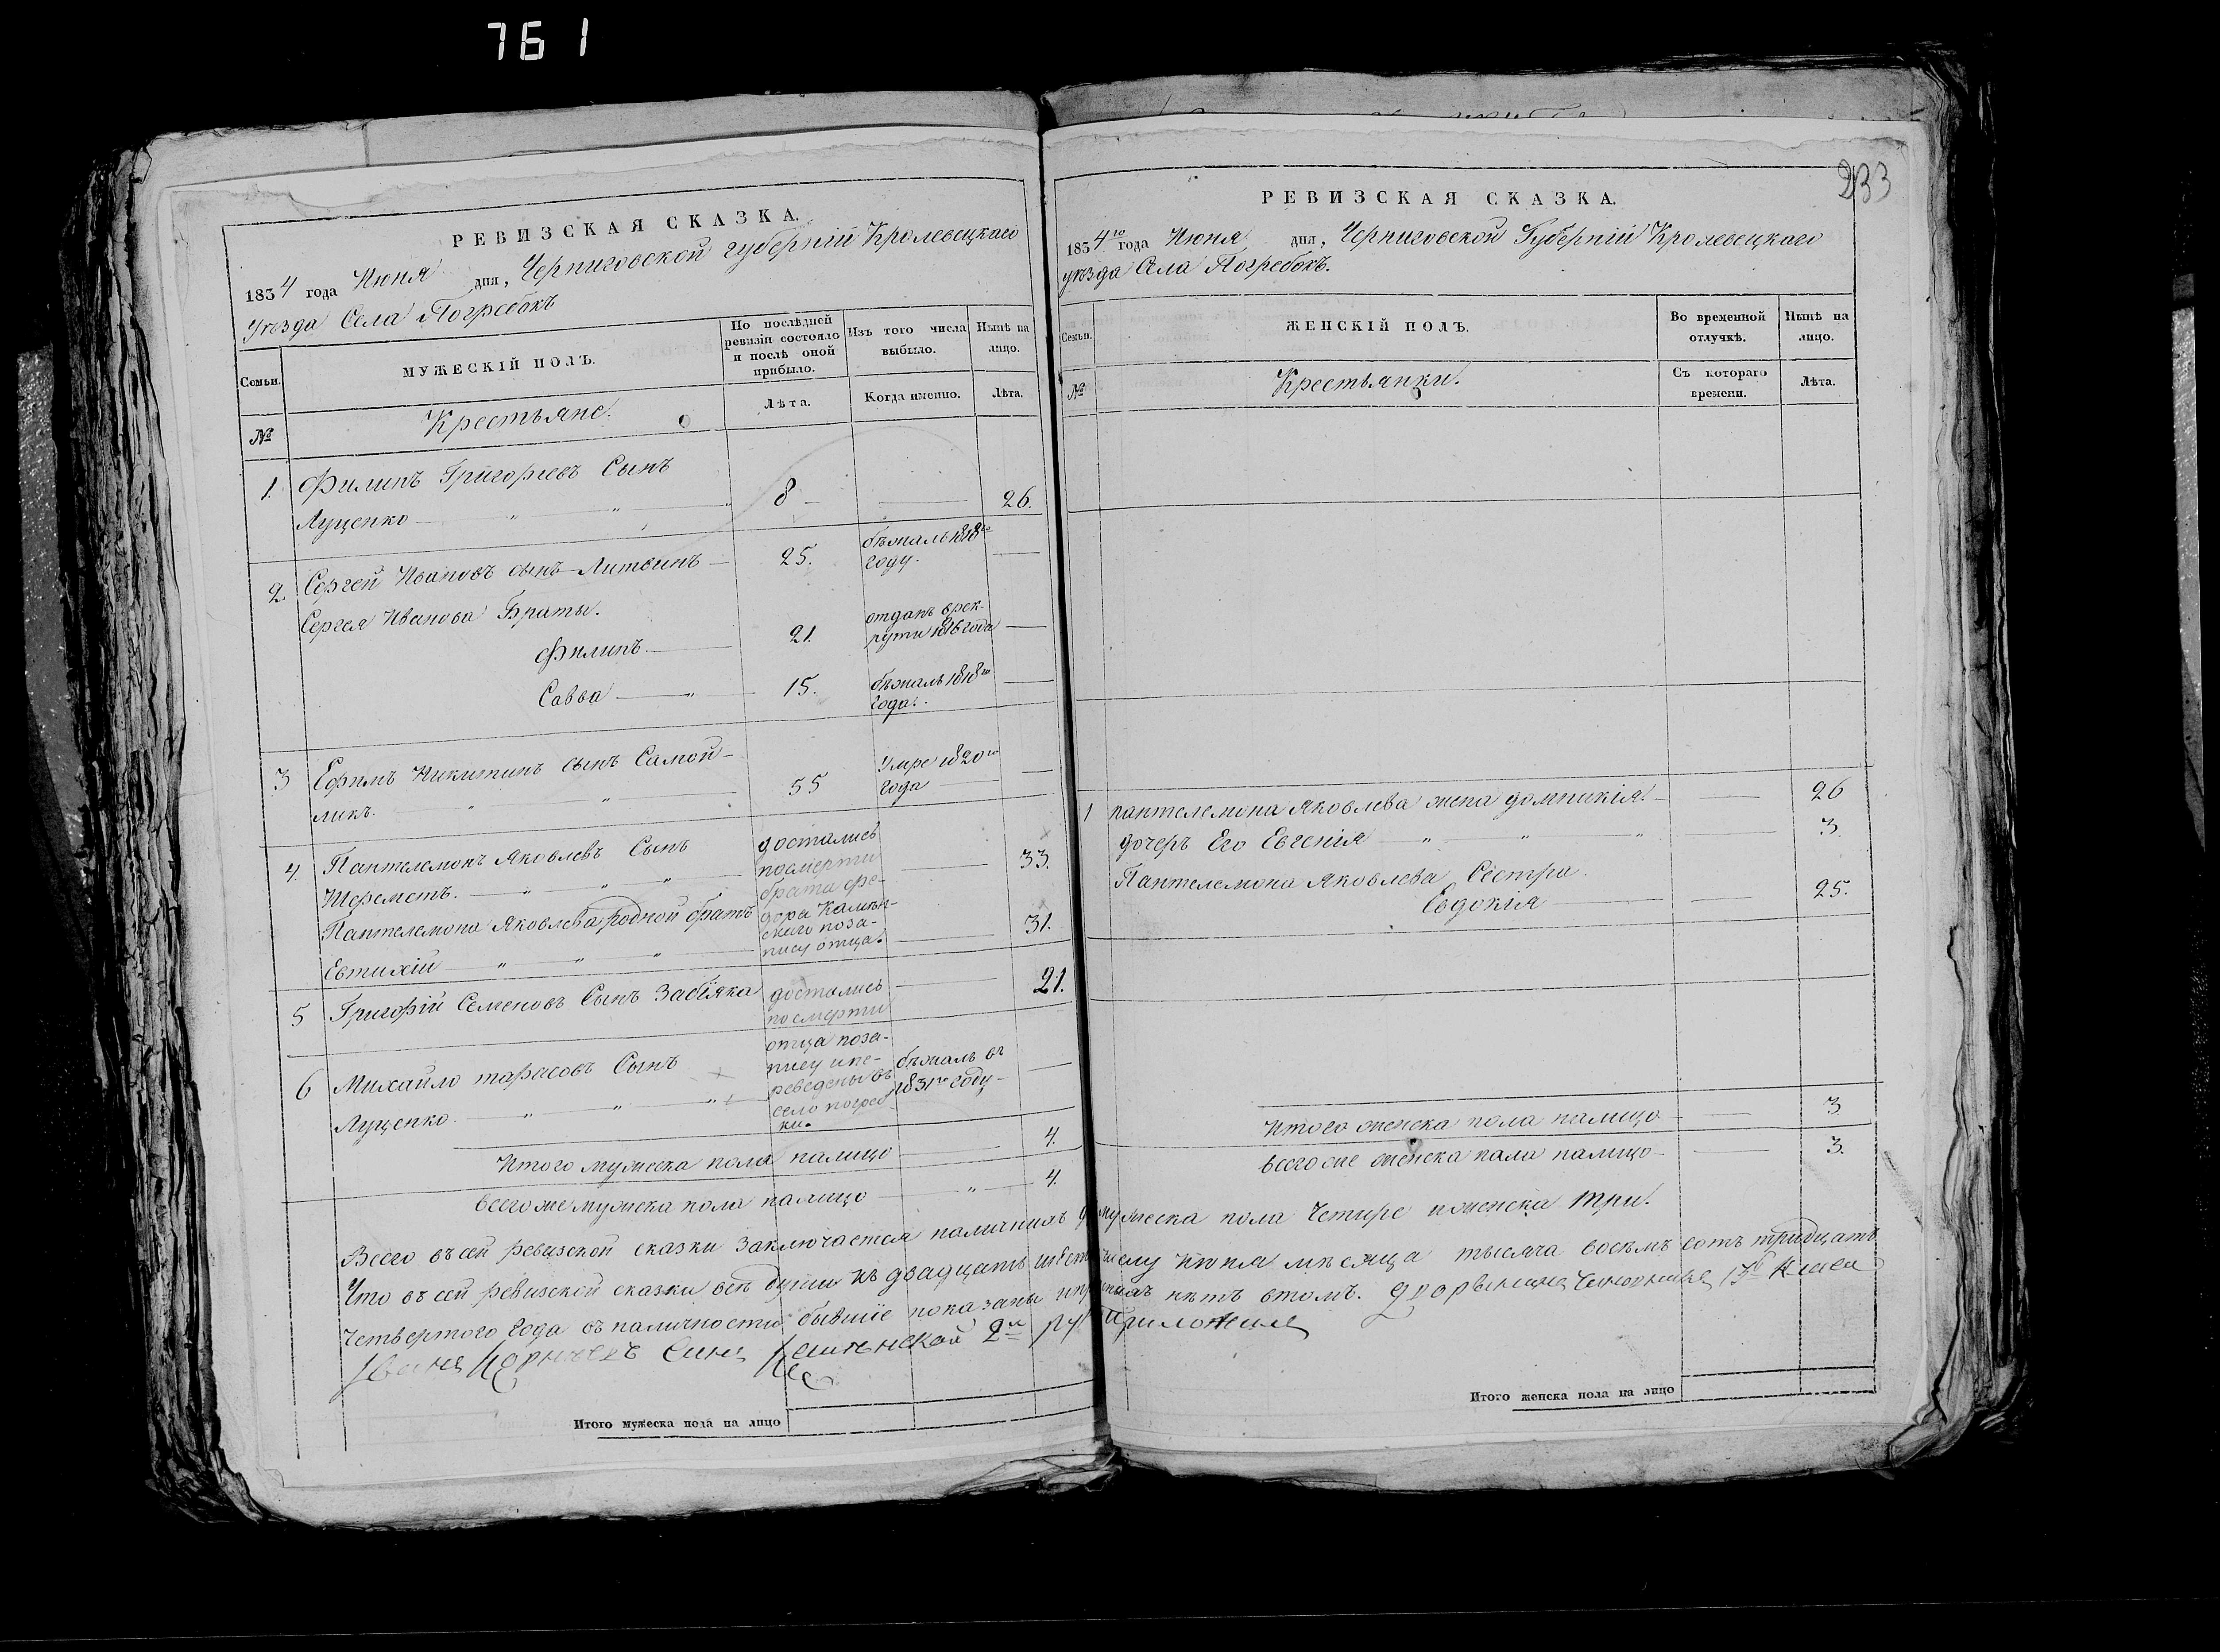 761
РЕВИЗСКАЯ СКАЗКА.
1834 года Июня дня, Черниговской губерніи Кролевецкаго
Уезда Села Погребокъ
Семьи.
МУЖЕСКІЙ ПОЛЪ.
По послѣдней ревизіи состояло и послѣ оной прибыло.
Изъ того числа выбыло.
Нынѣ на лицо.
№
Крестьяне.
Лѣта.
Когда именно.
Лѣта.
1. Филипъ Григорьевъ Сынъ
Луценко 8 26.
2. Сергей Ивановъ сынъ Литвинъ 25. бѣжалъ 1818го
году.
Сергея Иванова Браты.
Филипъ 21. отданъ врек-
рути 1816 года
Савва 15. бѣжалъ 1818го
года.
3 Ефимъ Никитинъ сынъ Самой-
ликъ 55 Умре 1820го
года
4. Пантелемонъ Яковлевъ Сынъ
Шереметъ. 33.
Пантелемона Яковлева родной братъ
Евтихій 31.
достались
посмерти
брата Фе-
дора Камен-
скаго поза-
пису отца.
5 Григорій Семеновъ Сынъ Забіяка 21.
достались
посмерти
отца поза-
пису ипе-
реведены въ
село погреб
ки.
6 Михайло тарасовъ Сынъ
Луценко бѣжалъ въ
1831го году
Итого мужеска пола налицо 4.
Всего же мужеска пола налицо 4.
233
РЕВИЗСКАЯ СКАЗКА.
1834го года Июня дня, Черниговской Губерніи Кролевецкаго
уезда Села Погребокъ.
Семьи.
ЖЕНСКІЙ ПОЛЪ.
Во временной отлучкѣ.
Нынѣ на лицо.
№
Крестьянки.
Съ котораго времени.
Лѣта.
1 пантелемона Яковлева жена домникія 26
дочеръ Его Евгенія 3.
Пантелемона Яковлева Сестра
Евдокія 25.
Итого женска пола налицо 3
всего же женска пола налицо 3.
Всего въ сей ревизской сказки Заключается наличнихъ мужеска пола Четире иженска три.
Что въ сей ревизской сказки всѣ души къ двадцать шест числу Июня мѣсяца тысяча восемъ сотъ тридцать
Четвертого Года съ наличности бывшіе показаны нетъ втомъ. дворянинъ Чиновникъ 13го Класа
Иванъ Синъ 2й Приложилъ
Итого мужеска пола на лицо
Итого женска пола на лицо